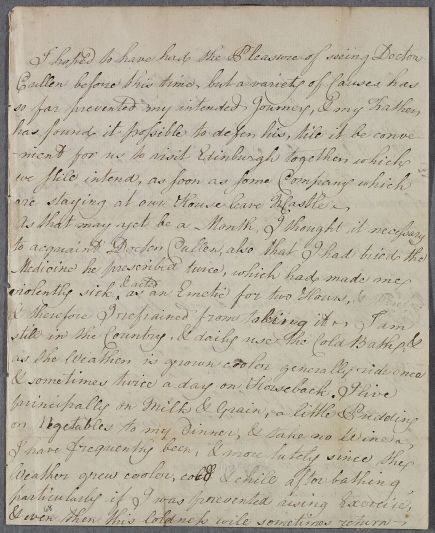 I hoped to have had the Pleasure of seeing Doctor
Cullen before this time, but a variety of Causes has
so far prevented my intended Journey, & my Father
has found it possible to defer his, till it be conve-
nient for us to visit Edinburgh together, which
we still intend, as soon as some Company which
are staying at our House leave
As that may yet be a Month, I thought it necessary
to acquaint Doctor Cullen, also that I had tried the
Medicine he prescribed twice, which had made me
violently sick, & acted as an Emetic for two Hours,
& therefore I refrained from taking it. I am
still in the Country, & daily use the Cold Bath, &
as the Weather is grown cooler generally ride once
& sometimes twice a day on Horseback. I live
principally on Milk & Grain, a little Pudding
or Vegetables to my Dinner, & take no Wine.
I have frequently been, & more lately since the
Weather grew cooler, cold & chill after bathing
particularly if I was prevented using Exercise,
& even then this coldness will sometimes return